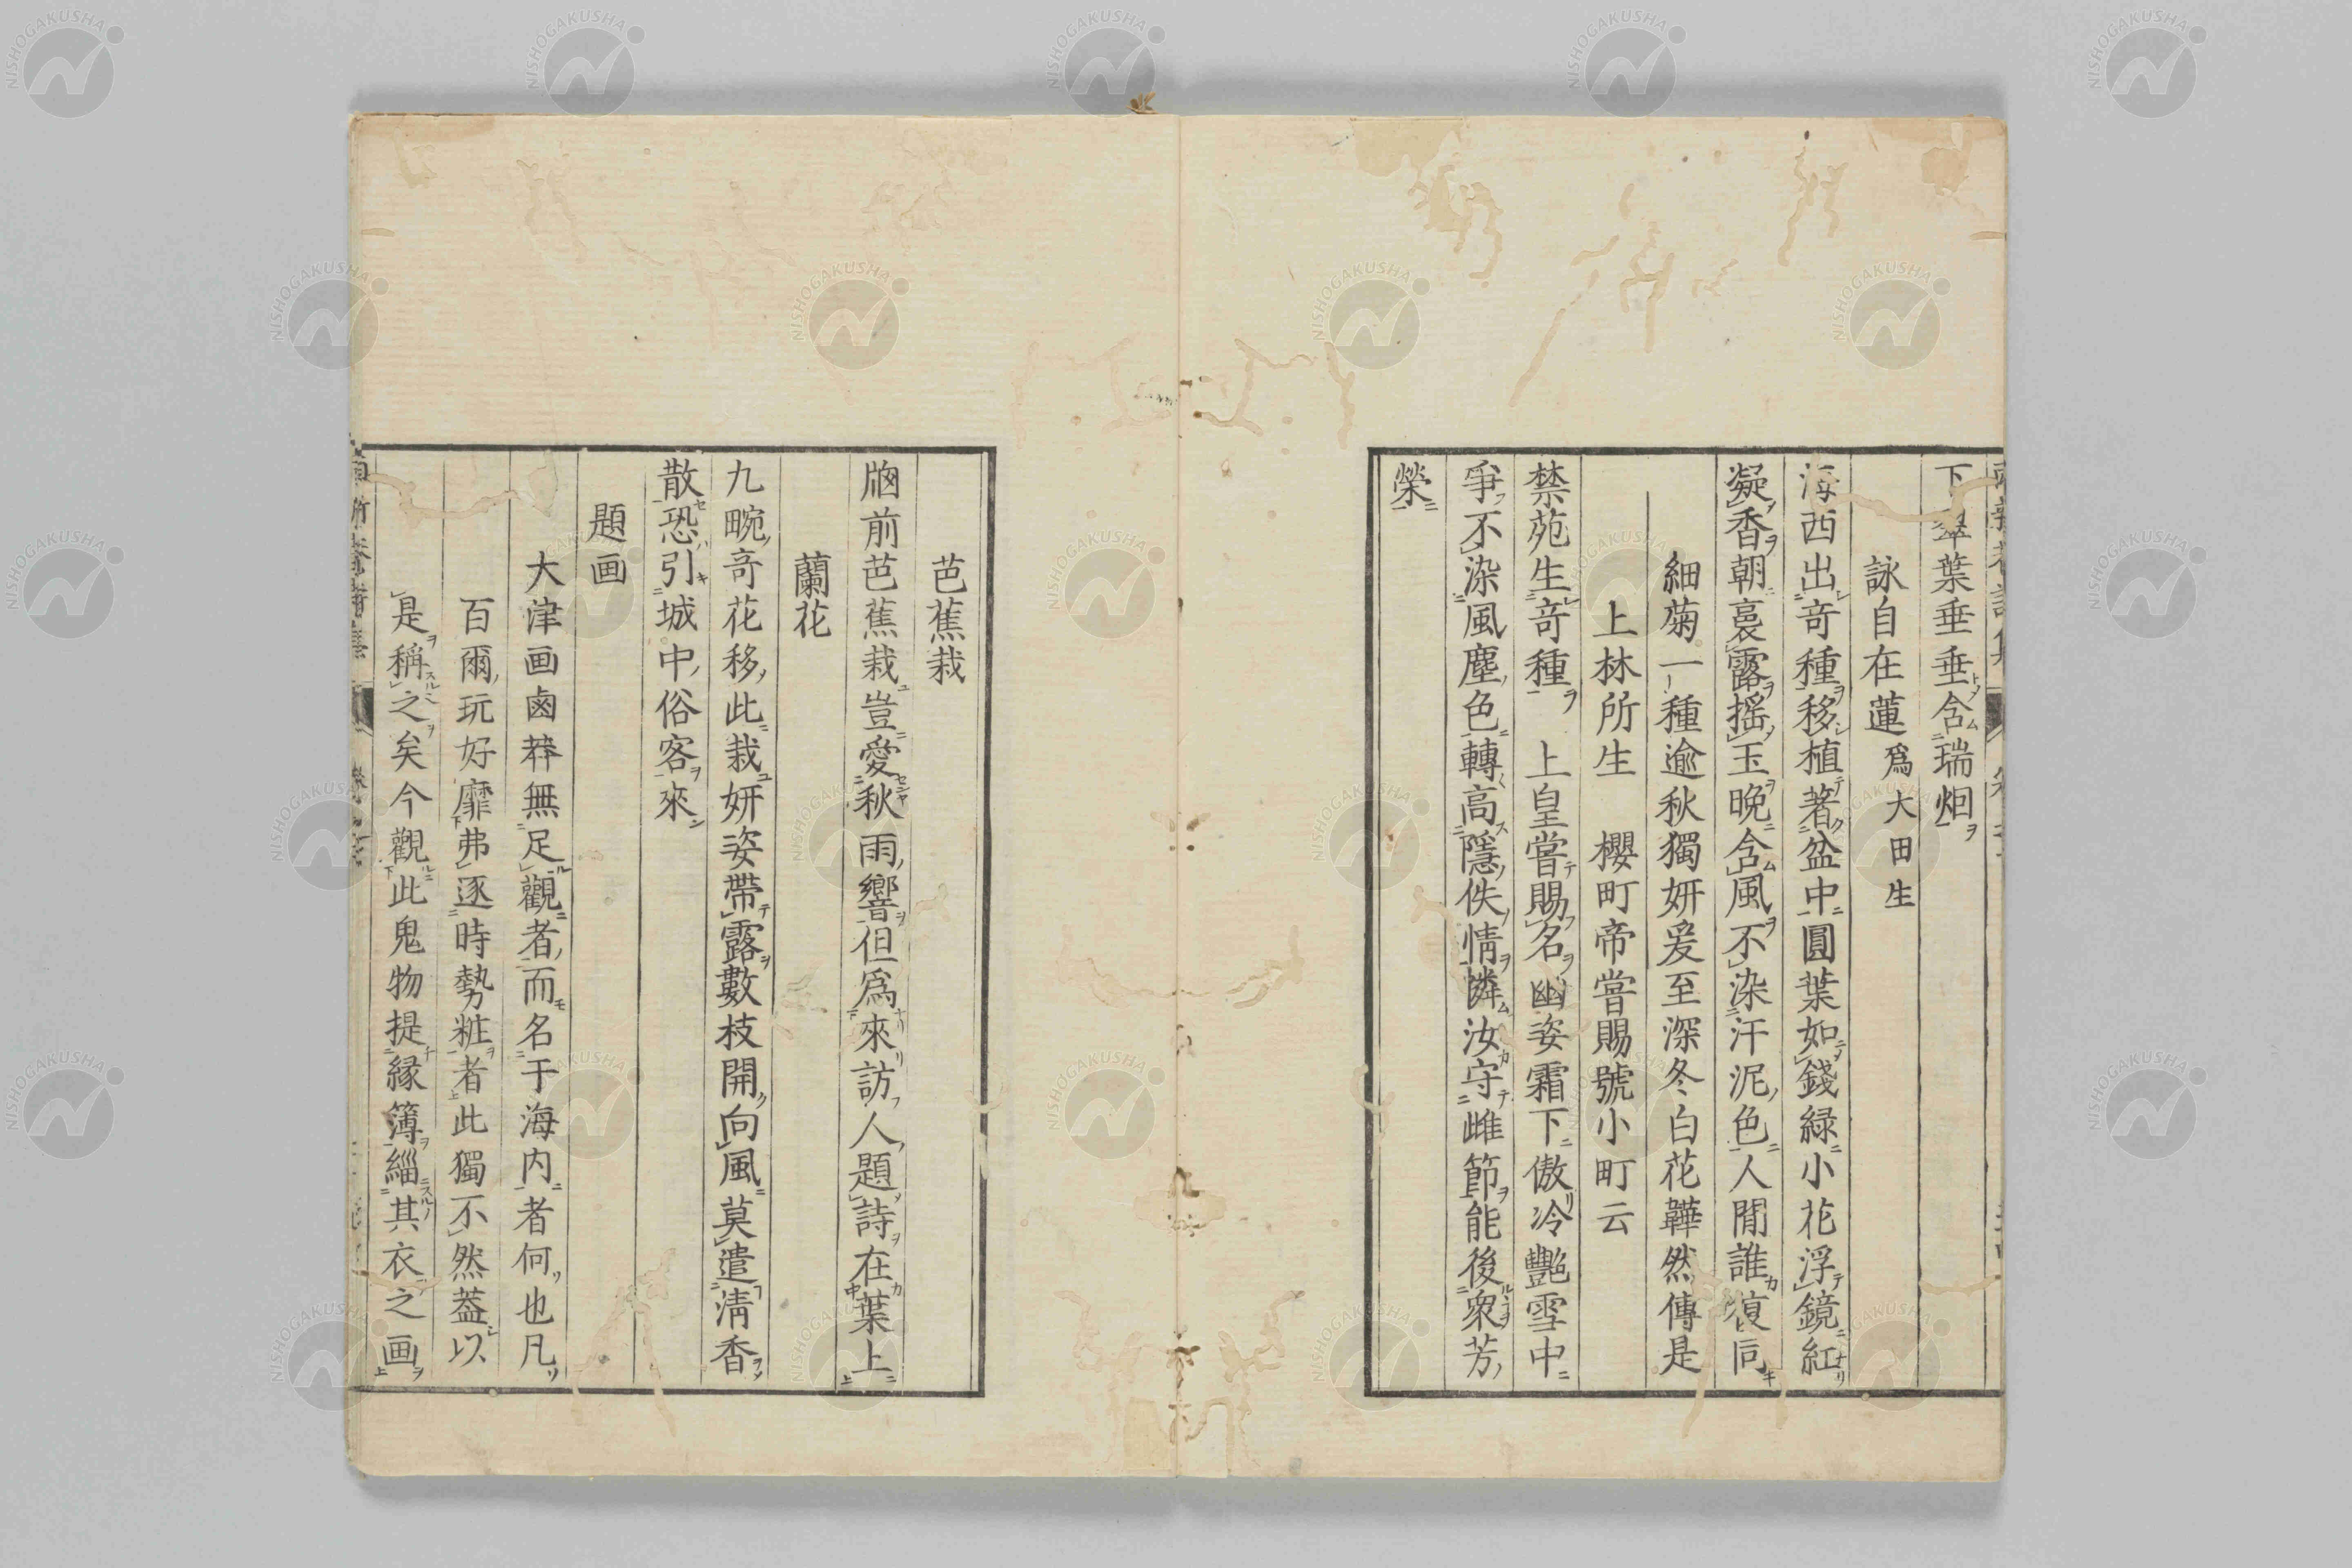 下翠葉垂垂含瑞烟
詠自在蓮爲大田生
海西出奇種移植著盆中圓葉如錢緑小花浮鏡紅
凝香朝裛露揺玉晩含風不染汙泥色人間誰復同
細菊一種逾秋獨妍爰至深冬白花韡然傳是
上林所生 櫻町帝嘗賜號小町云
禁苑生奇種 上皇嘗賜名幽姿霜下傲冷艷雪中
爭不染風塵色轉高隱佚情憐汝守雌節能後衆芳
榮
芭蕉栽
牕前芭蕉栽豈愛秋雨響但爲來訪人題詩在葉上
蘭花
九畹奇花移此栽妍姿帶露數枝開向風莫遣淸香
散恐引城中俗客來
題画
大津画鹵莽無足觀者而名于海内者何也凡
百爾玩好靡弗逐時勢粧者此獨不然葢以
是稱之矣今觀此鬼物提縁簿緇其衣之画